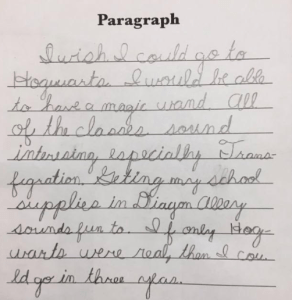 Paragraph
I wish I could go to
Hogwarts. I would be able
to have a magic wand. All
of the classes sound
interesting especially Trans-
figration. Geting my school
supplies in Diagon Alleey
sounds fun to. If only Hog-
warts were real, then I cou
ld go in three year.